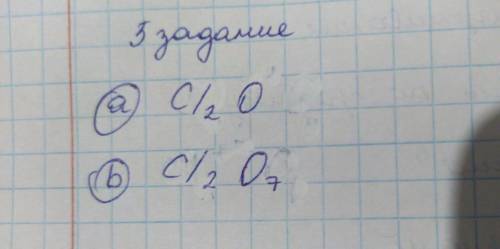 5 задание
a Cl₂O
b Cl₂O₇